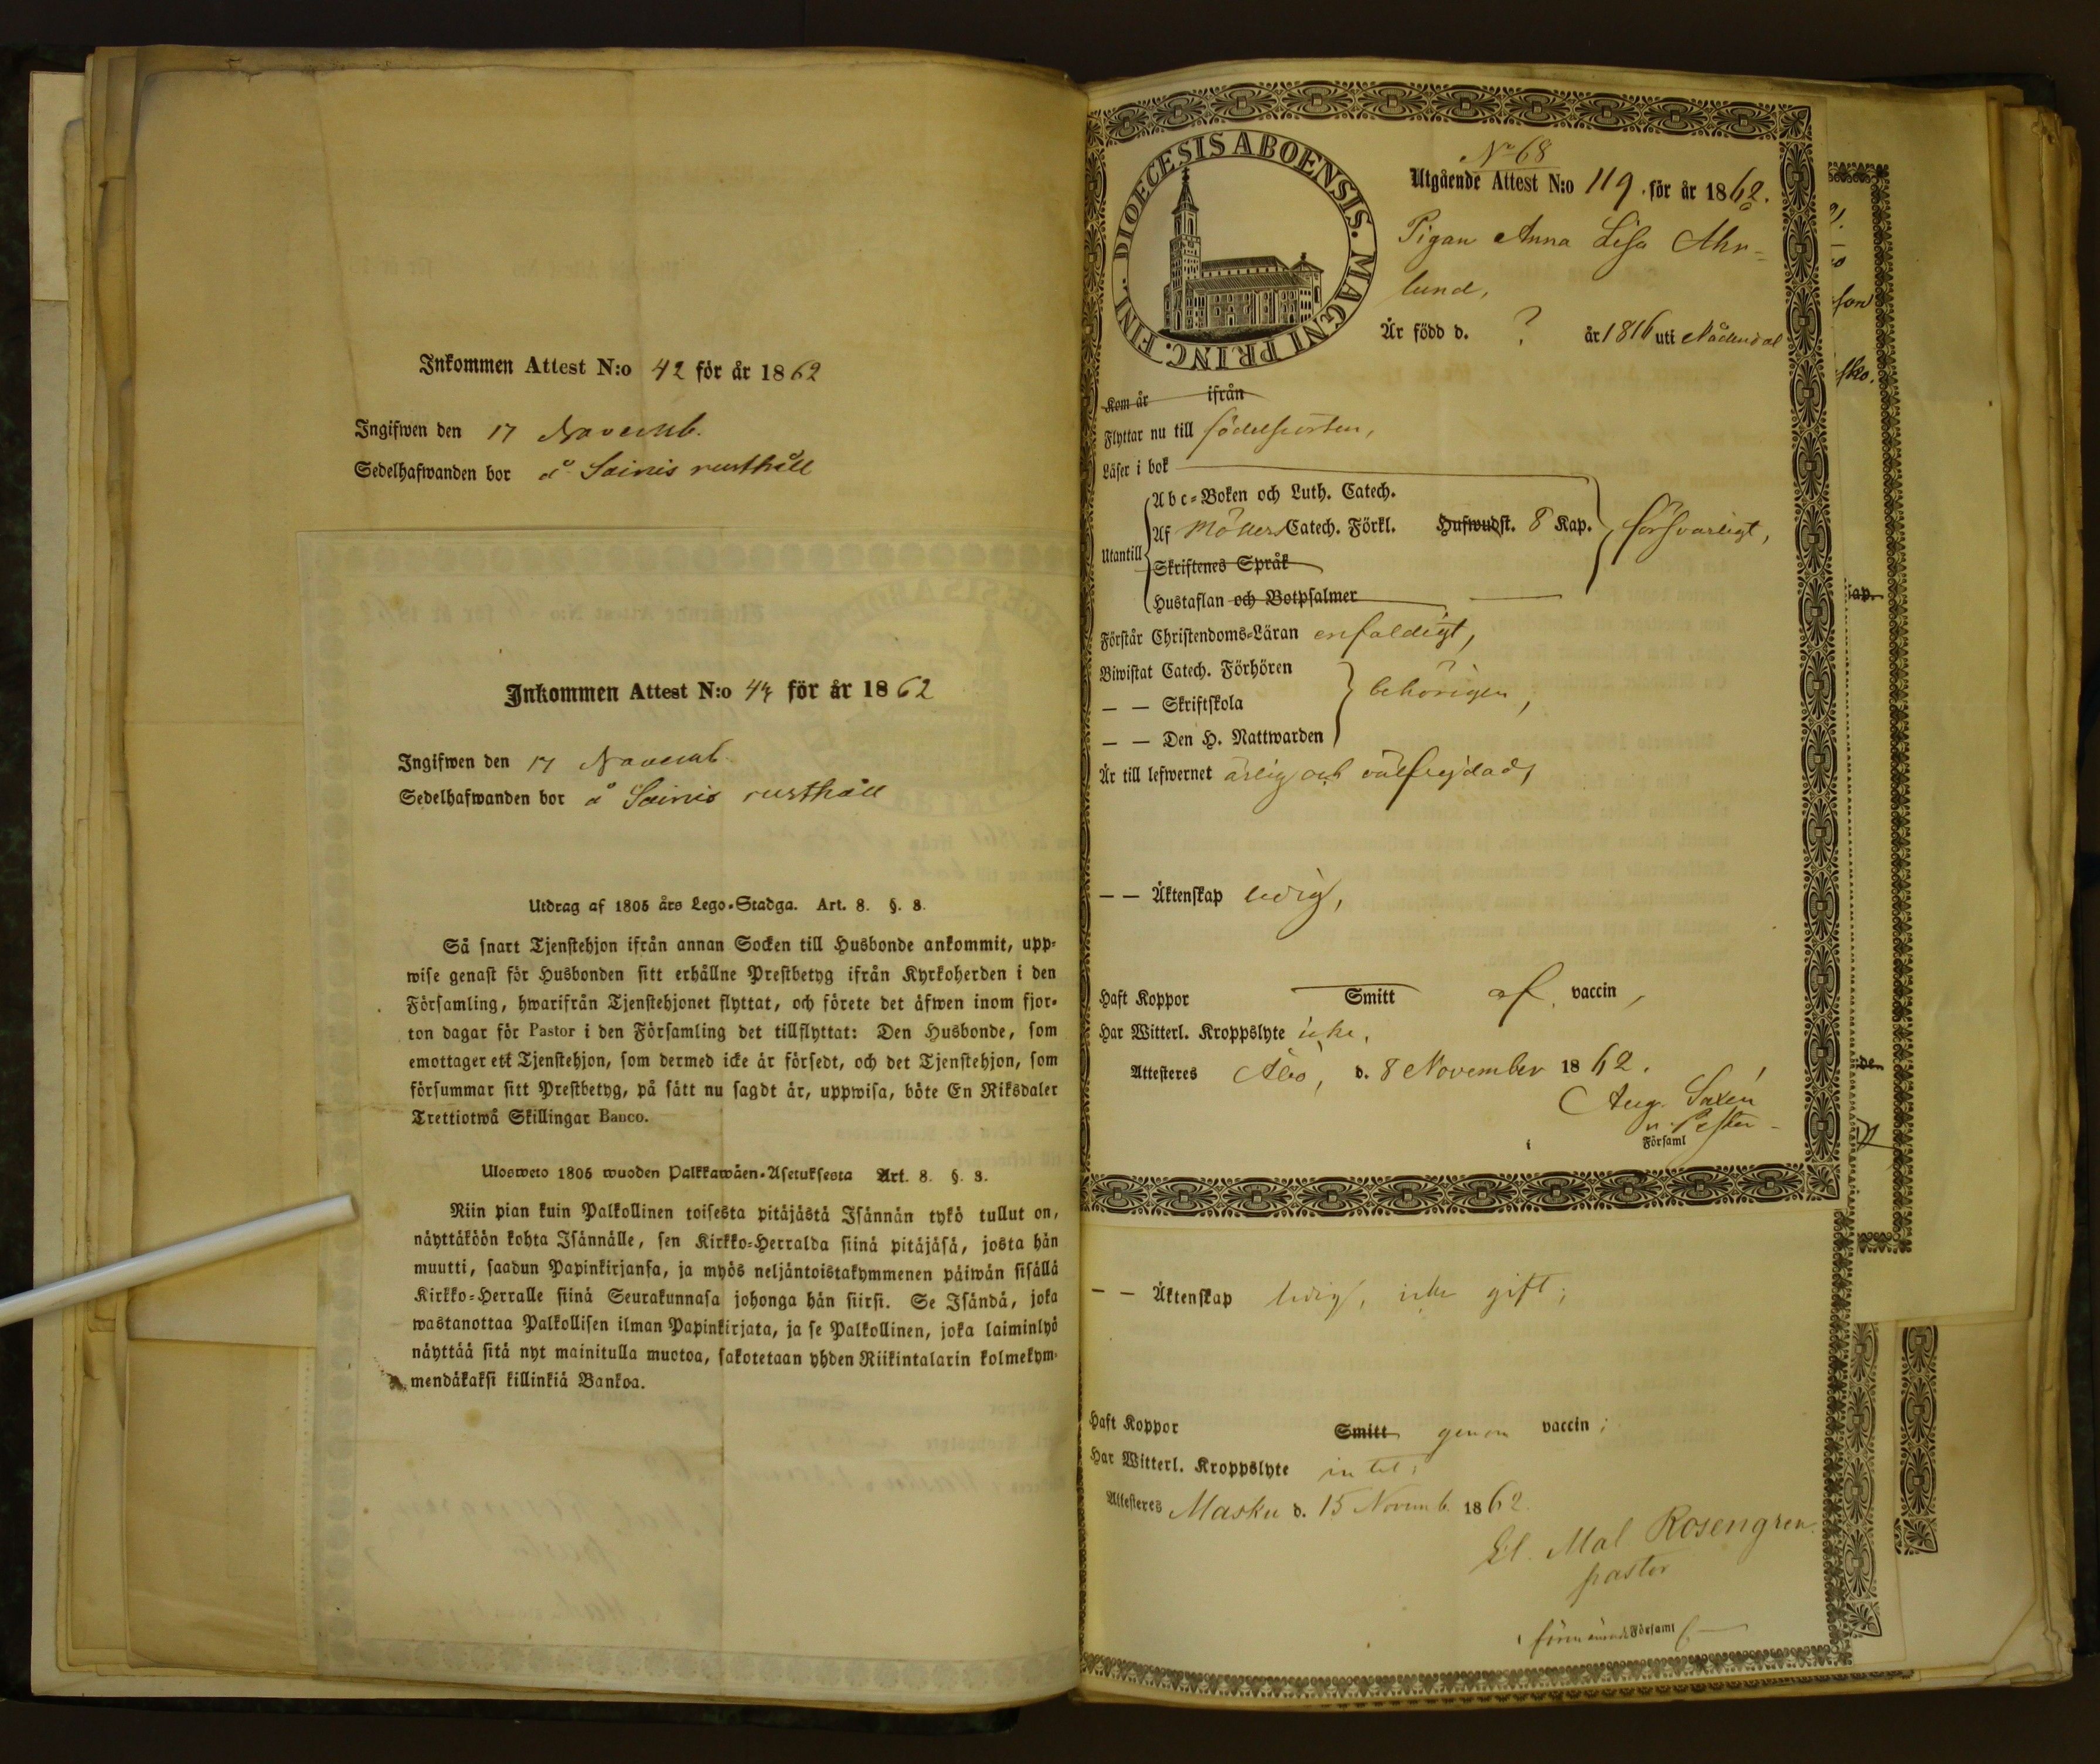 Inkommen Attest N:o 42 för år 1862
Ingifwen den 17 Novemb.
Sedelhafwanden bor å Sainis rusthåll
Inkommen Attest N:o 44 för år 1862
Ingifwen den 17 Novemb.
Sedelhafwanden bor å Sainis rusthåll
Utdrag af 1805 års Lego-Stadga. Art. 8. §. 8.
Så snart Tjenstehjon ifrån annan Socken till Husbonde ankommit, upp-
wise genast för Husbonden sitt erhållne Prestbetyg ifrån Kyrkoherden i den
Församling, hwarifrån Tjenstehjonet flyttat, och förete det äfwen inom fjor-
ton dagar för Pastor i den Församling det tillflyttat: Den Husbonde, som
emottager ett Tjenstehjon, som dermed icke är försedt, och det Tjenstehjon, som
försummar sitt Prestbetyg, på sätt nu sagdt är, uppwisa, böte En Riksdaler
Trettiotwå Skillingar Banco.
Ulosweto 1805 wuoden Palkkawäen-Asetuksesta Art. 8. §. 8.
Niin pian kuin Palkollinen toisesta pitäjästä Isännän tykö tullut on,
näyttäköön kohta Isännälle, sen Kirkko-Herralda siinä pitäjäsä, josta hän
muutti, saadun Papinkirjansa, ja myös neljäntoistakymmenen päiwän sisällä
Kirkko-Herralle siinä Seurakunnasa johonga hän siirsi. Se Isändä, joka
wastanottaa Palkollisen ilman Papinkirjata, ja se Palkollinen, joka laiminlyö
näyttää sitä nyt mainitulla muotoa, sakotetaan yhden Riikintalarin kolmekym-
mendäkaksi killinkiä Bankoa.
DIOECESIS ABOENSIS. MAGNI PRINC. FINL.
No 68
Utgående Attest N:o 119. för år 1862.
Pigan Anna Lisa Ahr-
lund,
Är född d. ? år 1816 uti Nådendal
Kom år ifrån
Flyttar nu till födelseorten,
Läser i bok
Utantill
Abc-Boken och Luth. Catech.
Af Möllers Catech. Förkl. Hufwudst. 8 Kap. försvarligt,
Skriftenes Språk
Hustaflan och Botpsalmer
Förstår Christendoms-Läran enfaldigt,
Biwistat Catech. Förhören
— — Skriftskola behörigen,
— — Den H. Nattwarden
Är till lefwernet ärlig och välfrejdad,
— — Äktenskap ledig,
Haft Koppor Smitt af vaccin,
Har Witterl. Kroppslyte icke.
Attesteres Åbo, d. 8 November 1862.
Aug. Saxén
i Församl
— — Äktenskap ledig, icke gift;
Haft Koppor Smitt genom vaccin;
Har Witterl. Kroppslyte intet;
Attesteres Masku d. 15 Novemb. 1862.
Mal Rosengren
pastor
i Församl